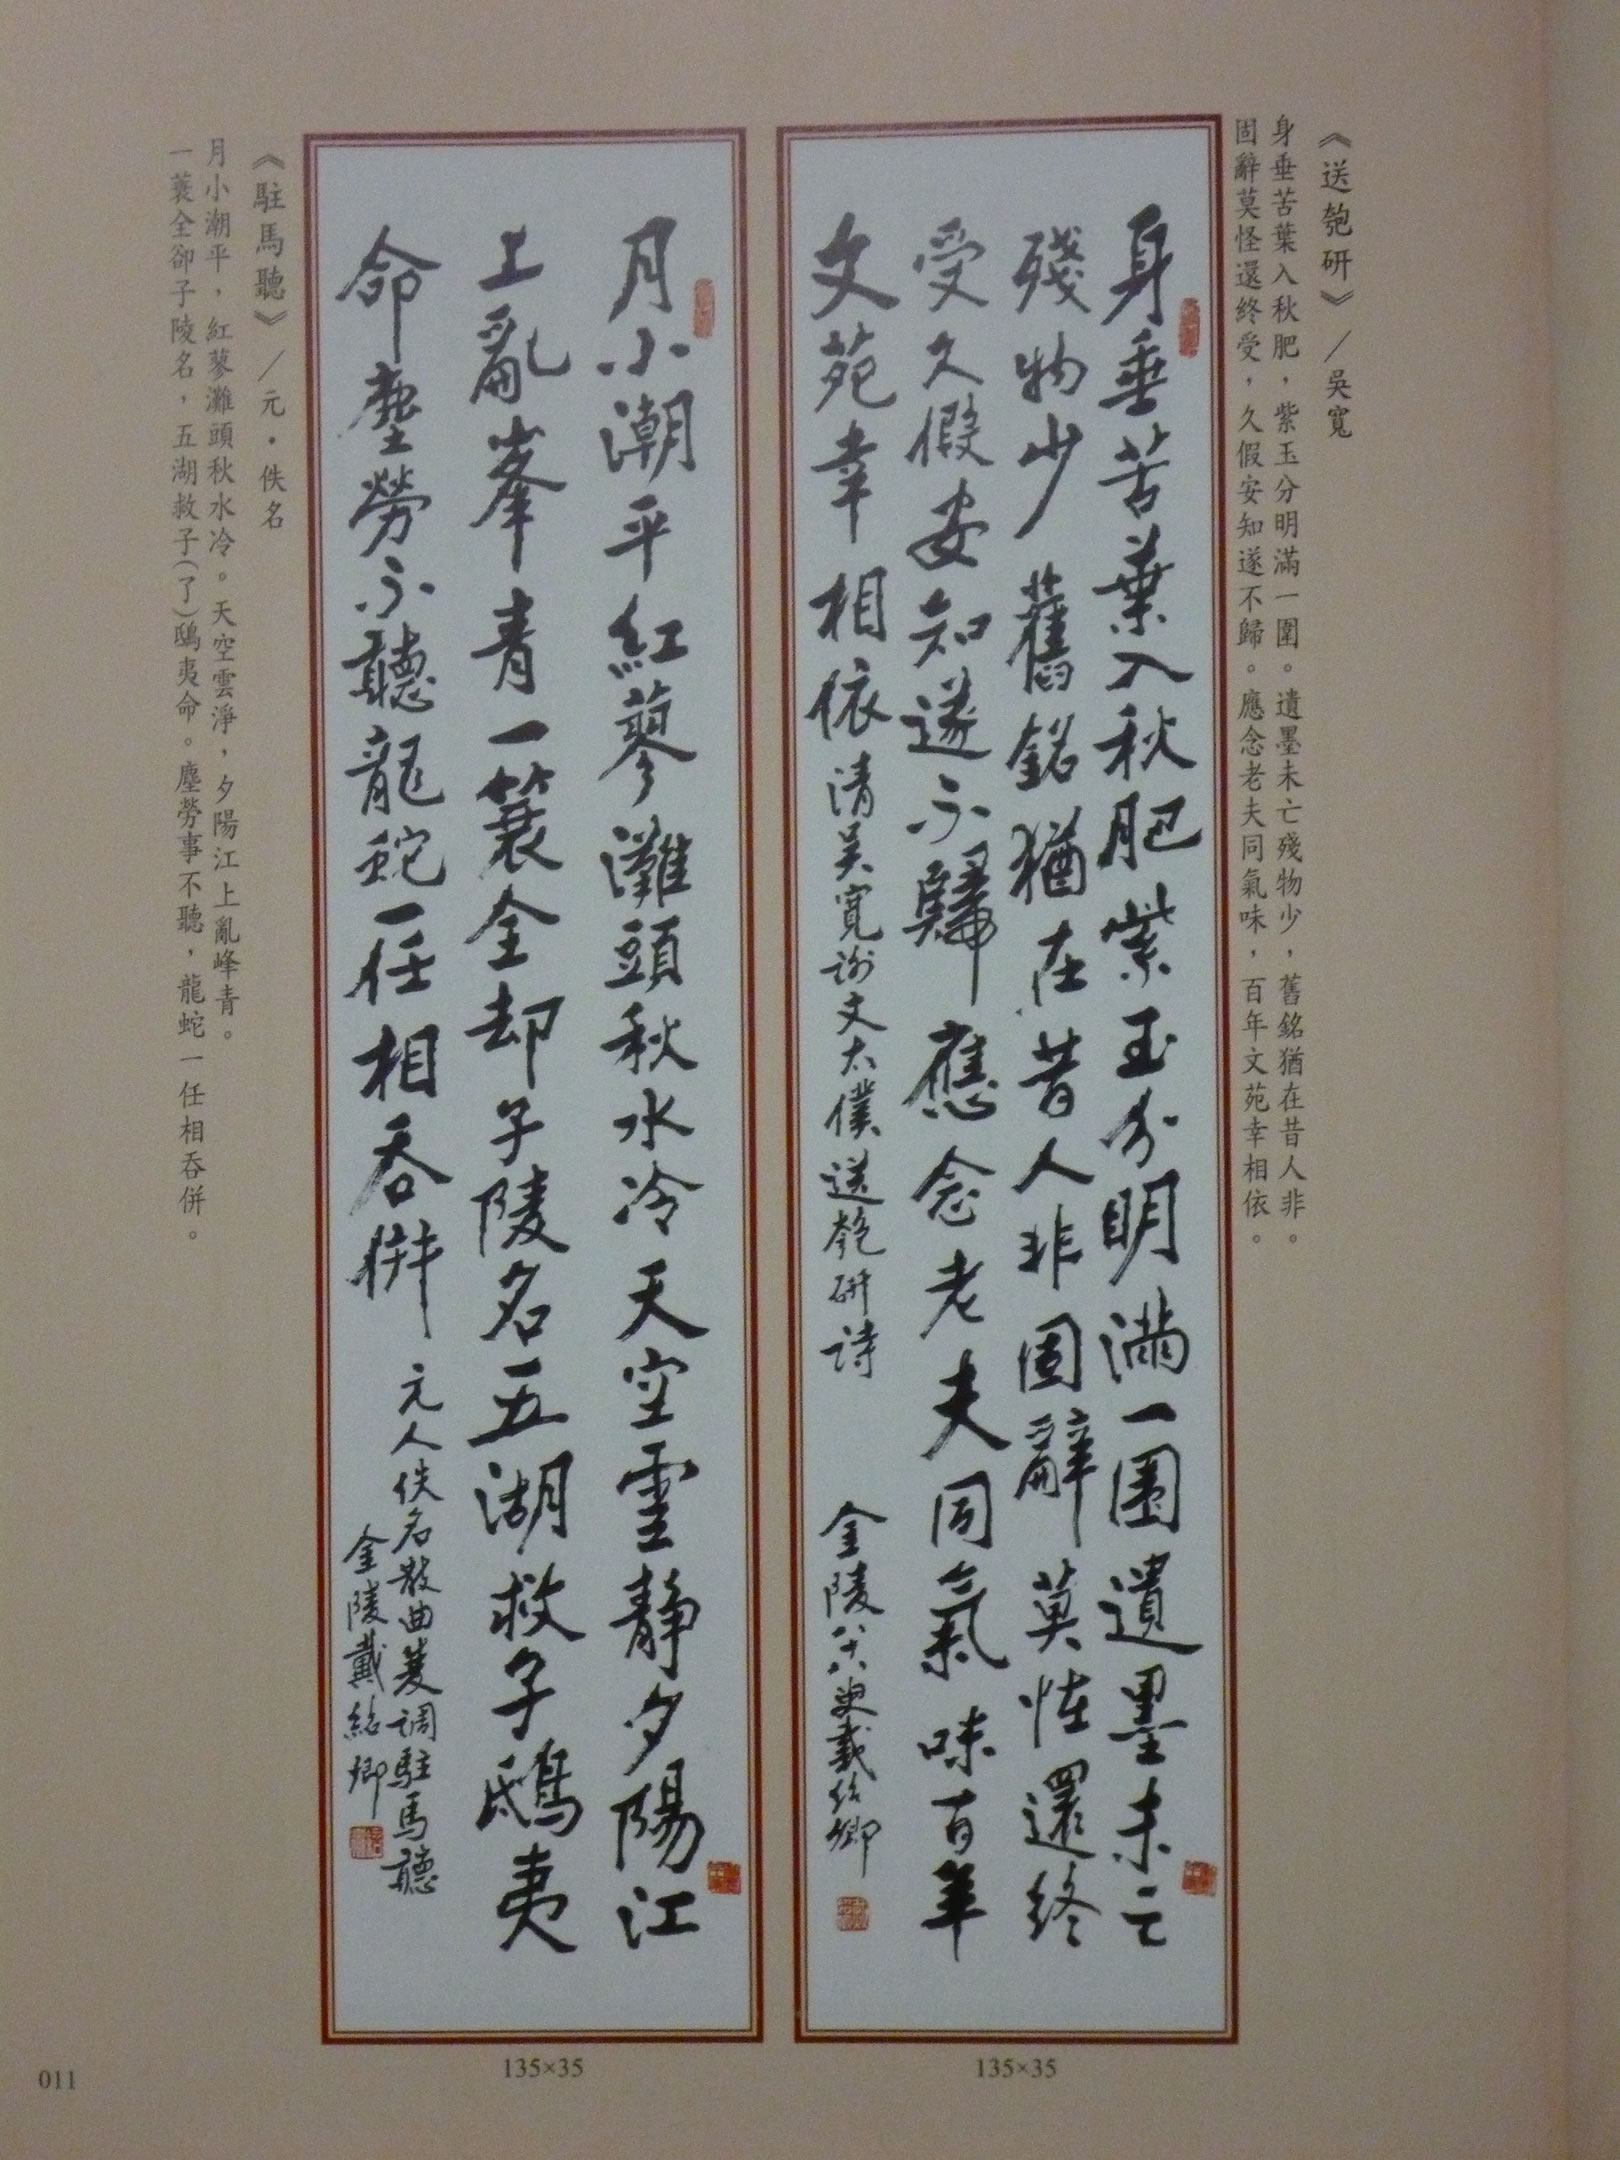 《送匏研》／吳寬
身垂苦葉入秋肥，紫玉分明滿一圍。遺墨未亡殘物少，舊銘猶在昔人非。
固辭莫怪還終受，久假安知遂不歸。應念老夫同氣味，百年文苑幸相依。
身垂苦葉入秋肥紫玉分明滿一圍遺墨未亡
殘物少舊銘猶在昔人非固辭莫怪還終
受久假安知遂不歸應念老夫同氣味百年
文苑幸相依清吳寬謝文太僕送匏研詩
金陵八十八叟戴紹卿
135×35
月小潮平紅蓼灘頭秋水冷天空雲靜夕陽江
上亂峯青一蓑全却子陵名五湖救子鴟夷
命塵勞不聽龍蛇一任相吞併
元人佚名散曲雙調駐馬聽
金陵戴紹卿
135×35
《駐馬聽》／元·佚名
月小潮平，紅蓼灘頭秋水冷。天空雲淨，夕陽江上亂峰青。
一蓑全卻子陵名，五湖救子(了)鴟夷命。塵勞事不聽，龍蛇一任相吞併。
011